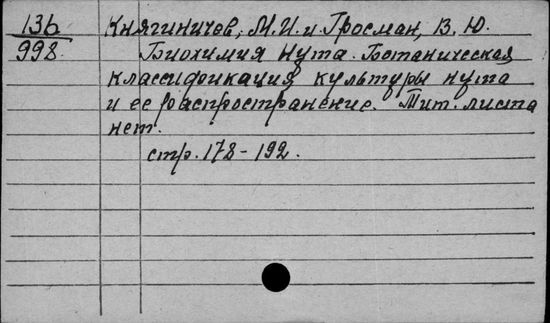 136
998.
Княгиничев, М.И. и Гросман, В. Ю.
Биохимия нута. Ботаническая
классификация культуры нута
и ее распространение. Тит. листа
нет.
стр. 178-192.